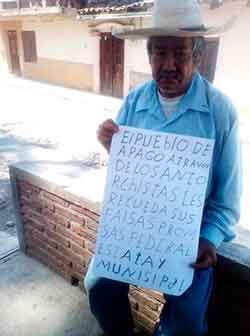 El PUEBlO DE
APAGO ATRAVES
DE LOS ANTO
RCHISTAS LES
RECUEDA SUS
FALSAS PROM
SAS FEDERAL
ESLATAY
MUNISIPAl